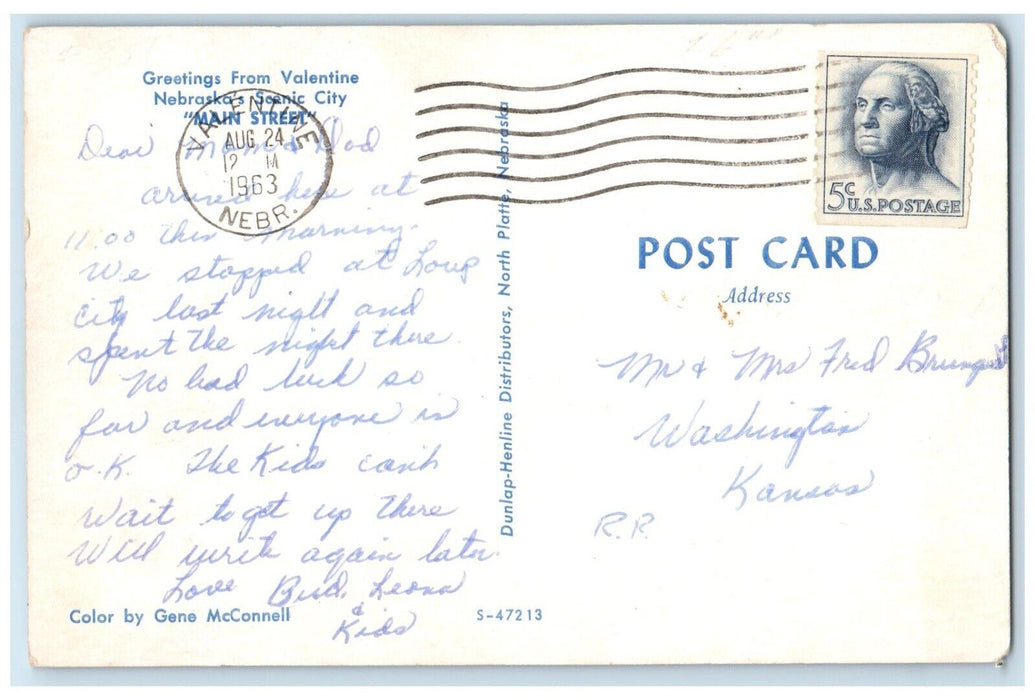 Greetings From Valentine
Nebraska's Scenic City
"MAIN STREET"
VALENTINE
AUG 24
12 M
1963
NEBR.
Dear Mom & Dad
arrived here at
11:00 this morning.
We stopped at Loup
city last night and
spent the night there.
No bad luck so
far and everyone is
O.K. The Kids can't
Wait to get up there
Will write again later.
Love Bud, Leona
&
Kids
Color by Gene McConnell
S-47213
Dunlap-Henline Distributors, North Platte, Nebraska
5c U.S. POSTAGE
POST CARD
Address
Mr & Mrs Fred
Washington
Kansas
R.R.